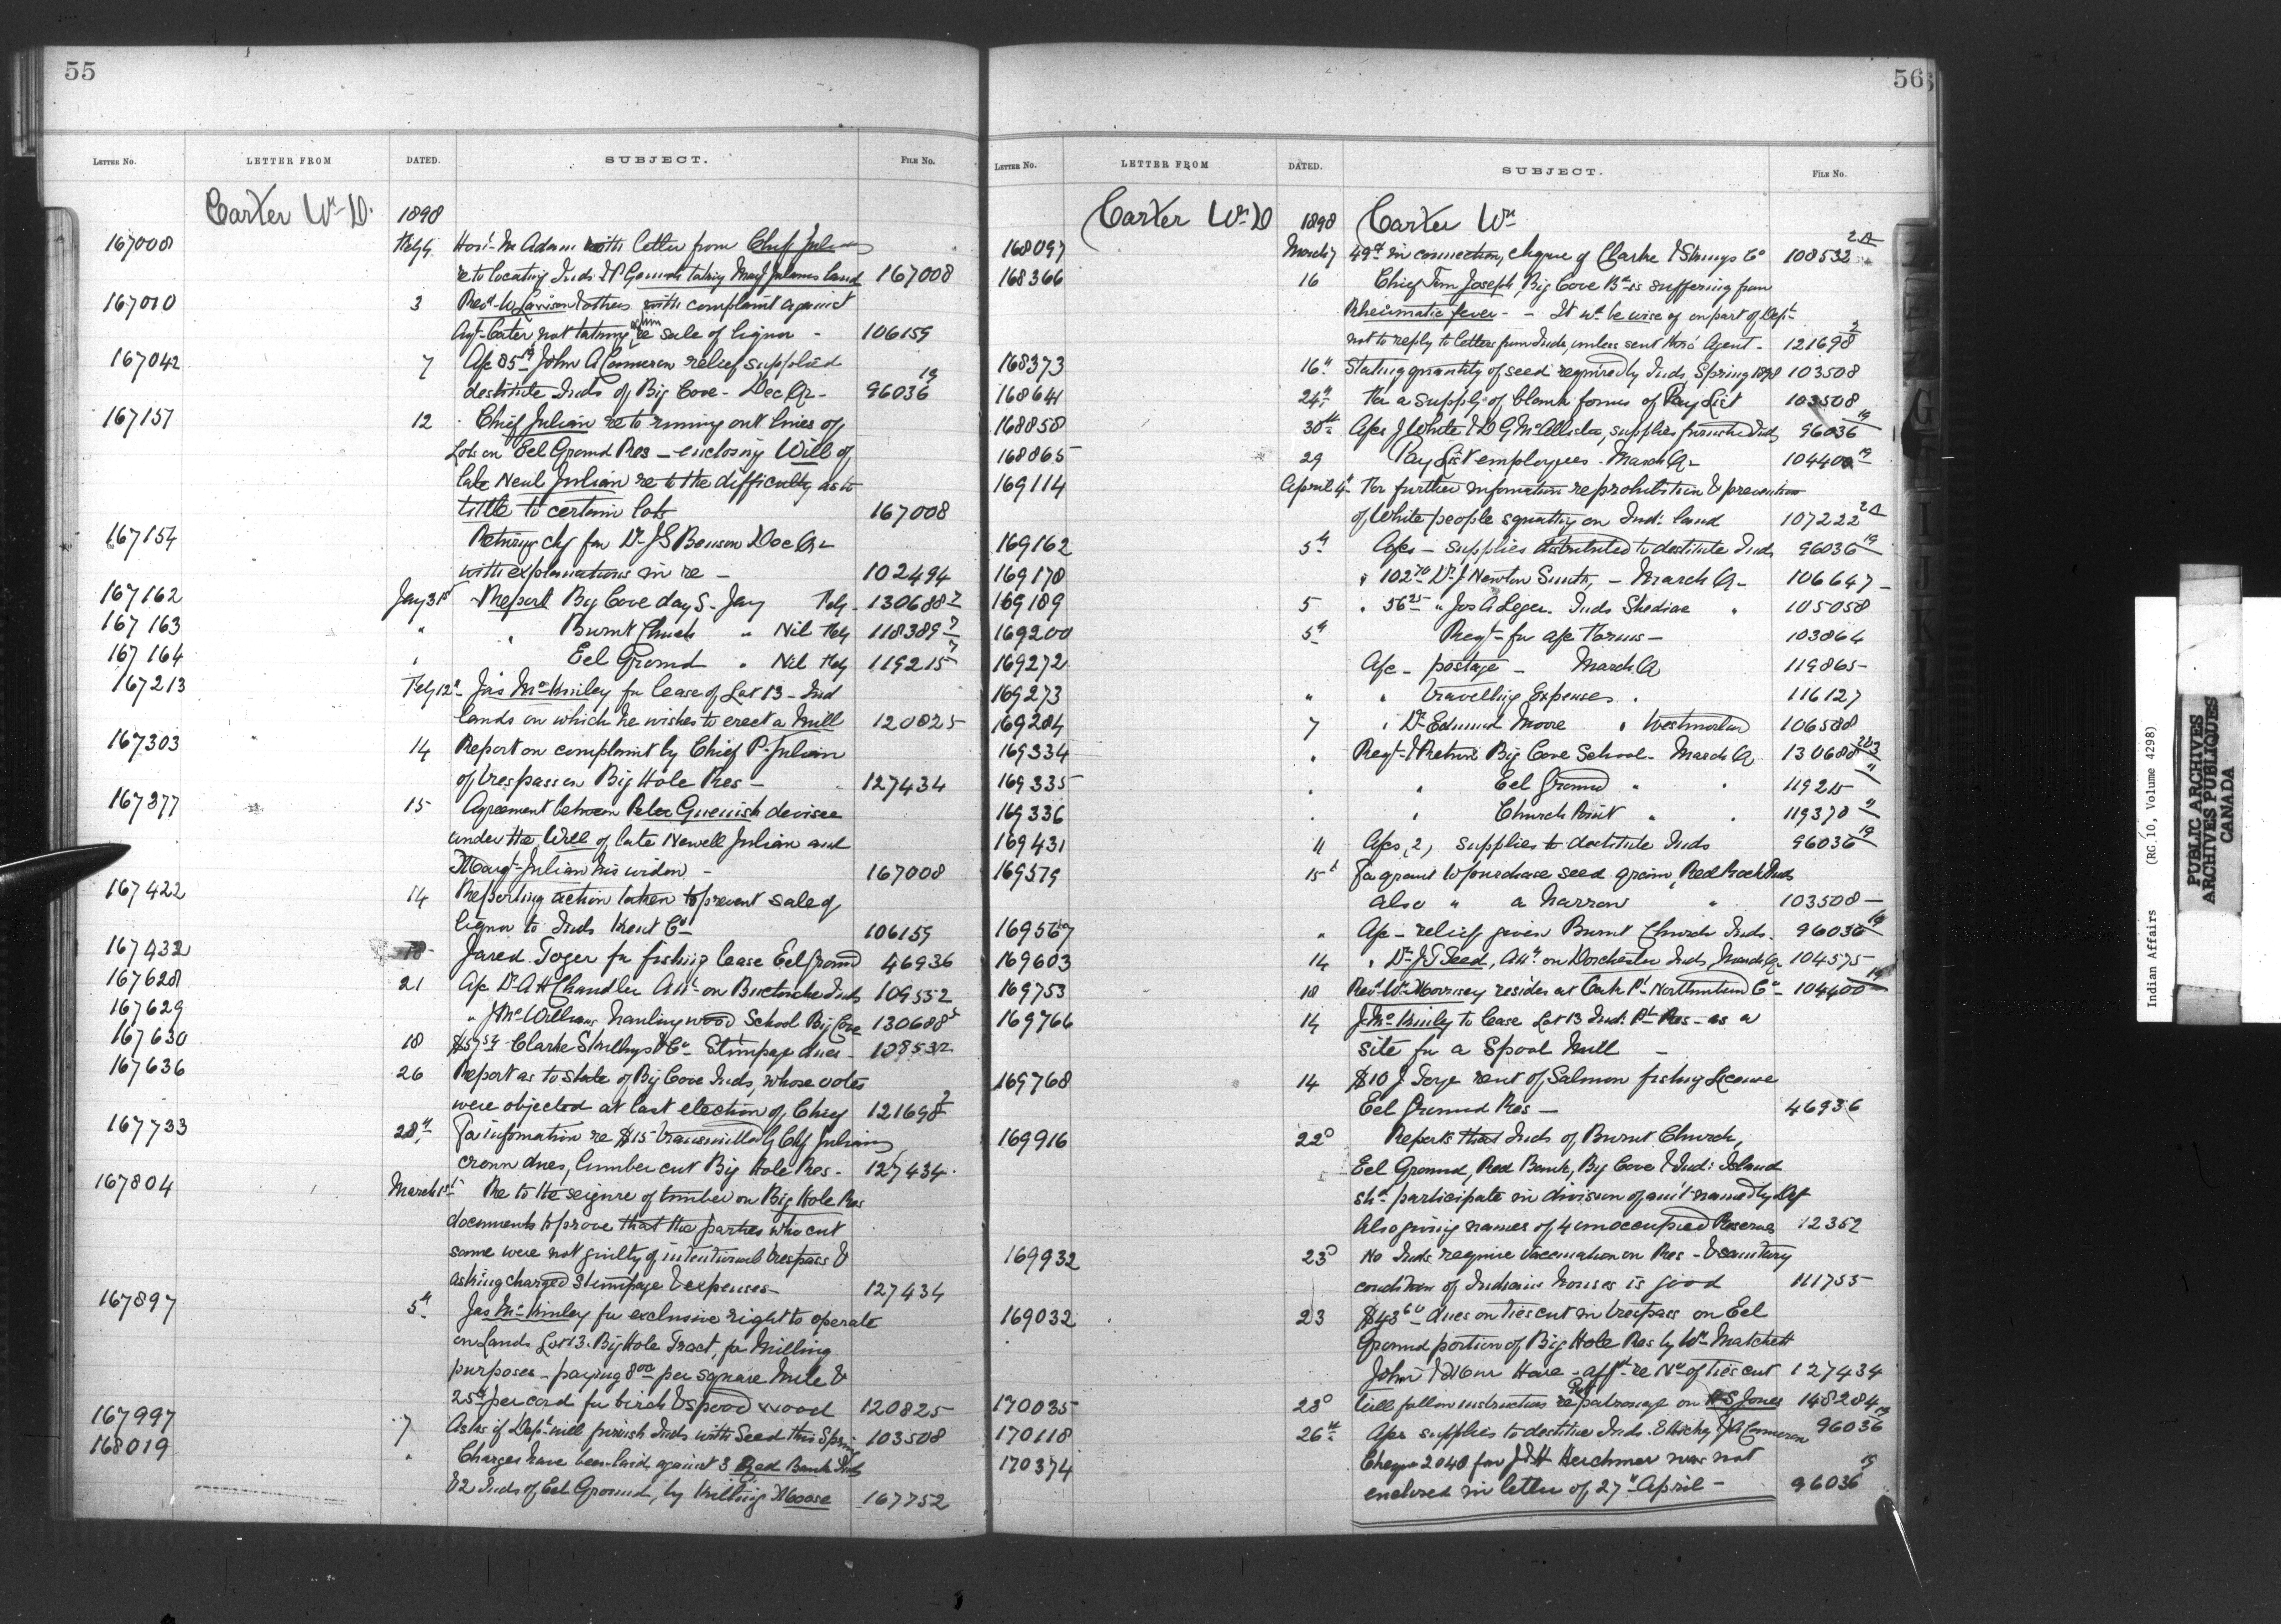 55
LETTER No. LETTER FROM DATED. SUBJECT. FILE No.
Carter Wm D. 1898
167008 Feby 4 Hon. McAdam with letter from Chief Julian
re to locating Inds & P Gonish taking Margt Juliens land 167008
167010 3 Revd W Lawson & others with complaint against
Agt Cater not taking action re sale of liquor - 106159
167042 7 A/c 85 19 John A Cameron relief supplied
destitute Inds of Big Cove - Dec Qr - 96036 19
167157 12 Chief Julian re to running out lines of
Lots on Eel Ground Res - enclosing Will of
late Newl Julian re to the difficulty as to
title to certain lots 167008
167154 Returning chq for Dr J S Benson Dec Qr
with explanations in re - 102494
167162 Jany 31st Report Big Cove day S. Jany Feby - 130688 2
167163 " " Burnt Church " Nil Feby 118389 2
167164 " Eel Ground " Nil Feby 119215 2
167213 Feby 12th Jas McKinley for lease of Lot 13 - Ind
lands on which he wishes to erect a Mill 120825
167303 14 Report on complaint by Chief P. Julian
of trespass on Big Hole Res - 127434
167377 15 Agreement between Peter Guenish devisee
under the Will of late Newell Julian and
Margt Julian his widow - 167008
167422 14 Reporting action taken to prevent sale of
liquor to Inds Kent Co 106159
167432 18 Jared Toger for fishing lease Eel Ground 46936
167628 21 A/c Dr A H Chandler Attn on Buctouche Inds 109552
167629 " J McWilliams hauling wood School Big Cove 130688
167630 18 Clarke Skillings & Co Stumpage dues - 108532
167636 26 Report as to state of Big Cove Inds, whose votes
were objected at last election of Chief 121698 2
167733 28th For information re $15 transmitted by Chf Julian
crown dues, lumber cut Big Hole Res - 127434
167804 March 1st Re to the seizure of timber on Big Hole Res
documents to prove that the parties who cut
same were not guilty of intentional trespass &
asking charged Stumpage & expenses - 127434
167897 5th Jas McKinley for exclusive right to operate
on Lands Lot 13. Big Hole Tract, for Milling
purposes - paying 8 00 per square Mile &
25c per cord for birch & spool wood 120825
167997 7 Asks if Dept will furnish Inds with Seed this Spring 103508
168019 " Charges have been laid against 3 Red Bank Inds
& 2 Inds of Eel Ground, by killing Moose 167752
56
LETTER No. LETTER FROM DATED. SUBJECT. FILE No.
Carter Wm D 1898 Carter Wm
168097 March 7 in connection, cheque of Clarke & Co 108532 2A
168366 16 Chief Tom Joseph, Big Cove Bd is suffering from
Rheumatic fever - - It wd be wise of on part of Dept
not to reply to letters from Inds, unless sent thro' Agent - 121698 2
168373 16th Stating quantity of seed required by Inds Spring 1898 103508
168641 24th For a supply of blank forms of Pay List 103508
168858 30th A/cs J White & D G McAllister, supplies furnished Inds 96036 19
168865 29 Pay List employees - March Qr 104400 19
169114 April 4th For further information re prohibition & prevention
of White people squatting on Ind: land 107222 2A
169162 5th A/cs - supplies distributed to destitute Inds 96036 19
169178 " 102 70 Dr J Newton Smith, - March Qr - 106647
169189 5 " 56 25 " Jos A Leger. Inds Shediac " 105058
169200 5th Reqt for a/c Forms - 103864
169272 A/c - postage - March Q 119865
169273 " " travelling Expenses " 116127
169284 7 " Dr Edmund Moore " Westmorland 106588
169334 " Reqt & Return Big Cove School - March Q 130688 2&3
169335 " " Eel Ground " " 119215 "
169336 " " Church Point " " 119378 "
169431 11 A/cs, 2, supplies to destitute Inds 96036 19
169579 15th For grant to purchase seed grain, Red Bank Inds
also " a harrow " 103508 -
169567 " A/c - relief given Burnt Church Inds. 96036 19
169603 14 " Dr J T Steed, Attn on Dorchester Inds March Qr 104575
169753 18 Revd Wm Morrisey resides at Oak Pt Northumland Co 104400 19
169766 14 J McKinley to lease Lot 13 Ind: Pt Res - as a
site for a Spool Mill -
169768 14 $10 J Toger rent of Salmon fishing License
Eel Ground Res - 46936
169916 22d Reports that Inds of Burnt Church,
Eel Ground, Red Bank, Big Cove & Ind: Island
shd participate in division of am't named by Dept
Also giving names of 4 unoccupied Reserves 12352
169932 23d No Inds require vaccination on Res - & sanitary
condition of Indians houses is good 111755
169032 23 $43 60 dues on ties cut in trespass on Eel
Ground portion of Big Hole Res by Wm Matchett
John & Hare - affts re No of ties cut 127434
170035 23d Will follow instructions re patronage on H S Jones 148284
170118 26th A/cs supplies to destitute Inds. E Hickey & J A Cameron 96036 19
170374 Cheque 2040 for J & H Herchmer was not
enclosed in letter of 27th April - 96036 19
Indian Affairs (RG 10, Volume 4298)
PUBLIC ARCHIVES
ARCHIVES PUBLIQUES
CANADA